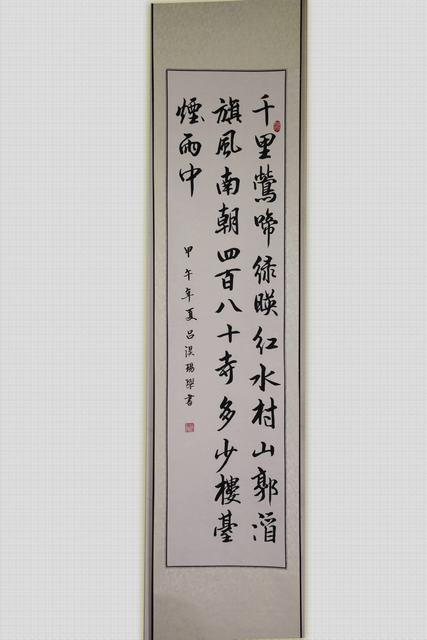 千里鶯啼绿暎红水村山郭酒
旗風南朝四百八十寺多少樓臺
煙雨中
甲午年夏吕書